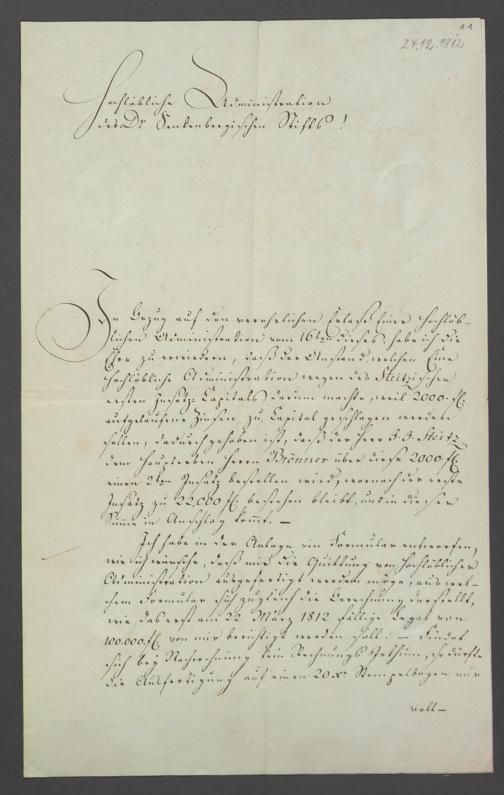 11
24.12.1812
Hochlöbliche Administration
des Dr. Senkenbergischen Stifts!
In Bezug auf den verehrlichen Erlaß Einer Hochlöb-
lichen Administration vom 16ten dieses, habe ich die
Ehre zu erwiedern, daß der Anstand welchen Eine
Hochlöbliche Administration wegen des Steitzischen
ersten Insatz-Capitals darum machte, weil 2000 fl.
aufgelaufene Zinsen zu Capital geschlagen werden
sollen, dadurch gehoben ist, daß der Herr J. J. Steitz
dem Haupterben Herrn Brönner über diese 2000 fl
einen 2ten Insatz bestellen wird, wornach der erste
Insatz zu 22,000 fl. bestehen bleibt, und in dieser
Summe in Anschlag kommt. —
Ich habe in der Anlage ein Formular entworfen,
wie ich wünsche, daß mir die Quittung von Hochlöblicher
Administration ausgefertigt werden möge, aus wel-
chem Formular sich zugleich die Berechnung darstellt,
wie das erst am 22 März 1812 fällige Legat von
100.000 fl. von mir berichtigt werden soll. — Findet
sich bey Nachrechnung kein Rechnungs Irthum, so dürfte
die Ausfertigung auf einen 20 xr. Stempelbogen nun
voll-